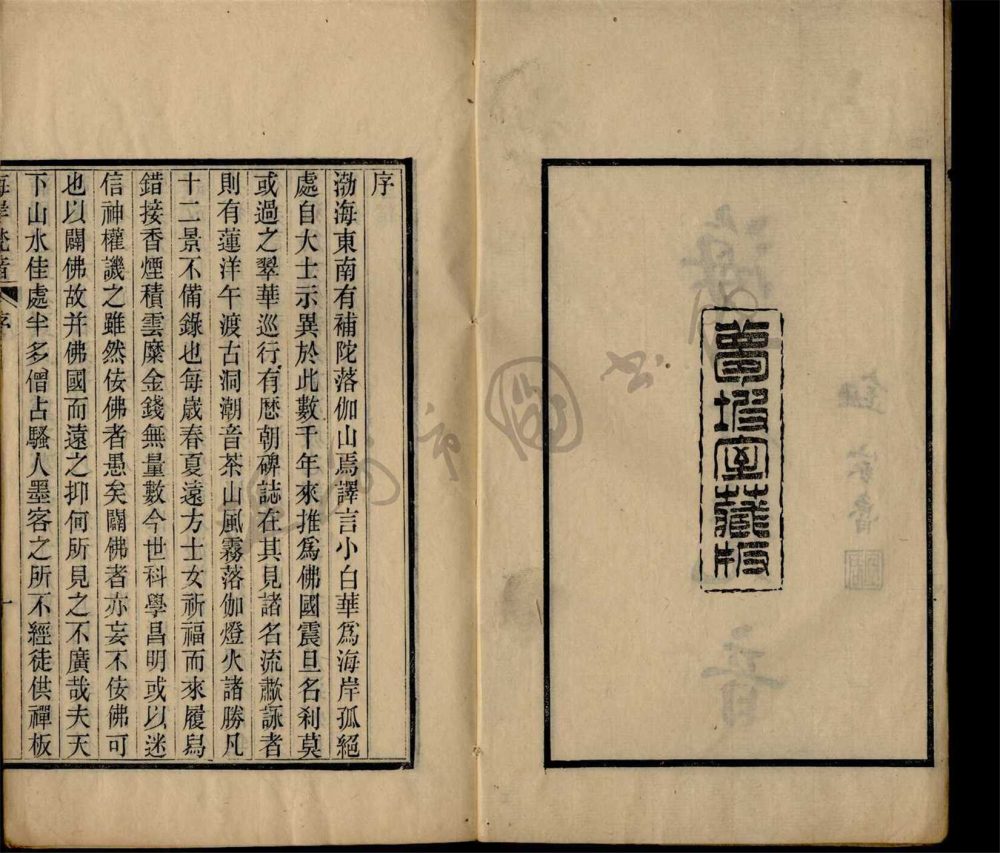 夢堦室藏板
序
渤海東南有補陀落伽山焉譯言小白華爲海岸孤絕
處自大士示異於此數千年來推爲佛國震旦名刹莫
或過之翠華巡行有歷朝碑誌在其見諸名流歗詠者
則有蓮洋午渡古洞潮音茶山風霧落伽燈火諸勝凡
十二景不備錄也每歲春夏遠方士女祈福而來履舄
錯接香煙積雲糜金錢無量數今世科學昌明或以迷
信神權譏之雖然佞佛者愚矣闢佛者亦妄不佞佛可
也以闢佛故并佛國而遠之抑何所見之不廣哉夫天
下山水佳處半多僧占騷人墨客之所不經徒供禪板
海岸梵音 序 一